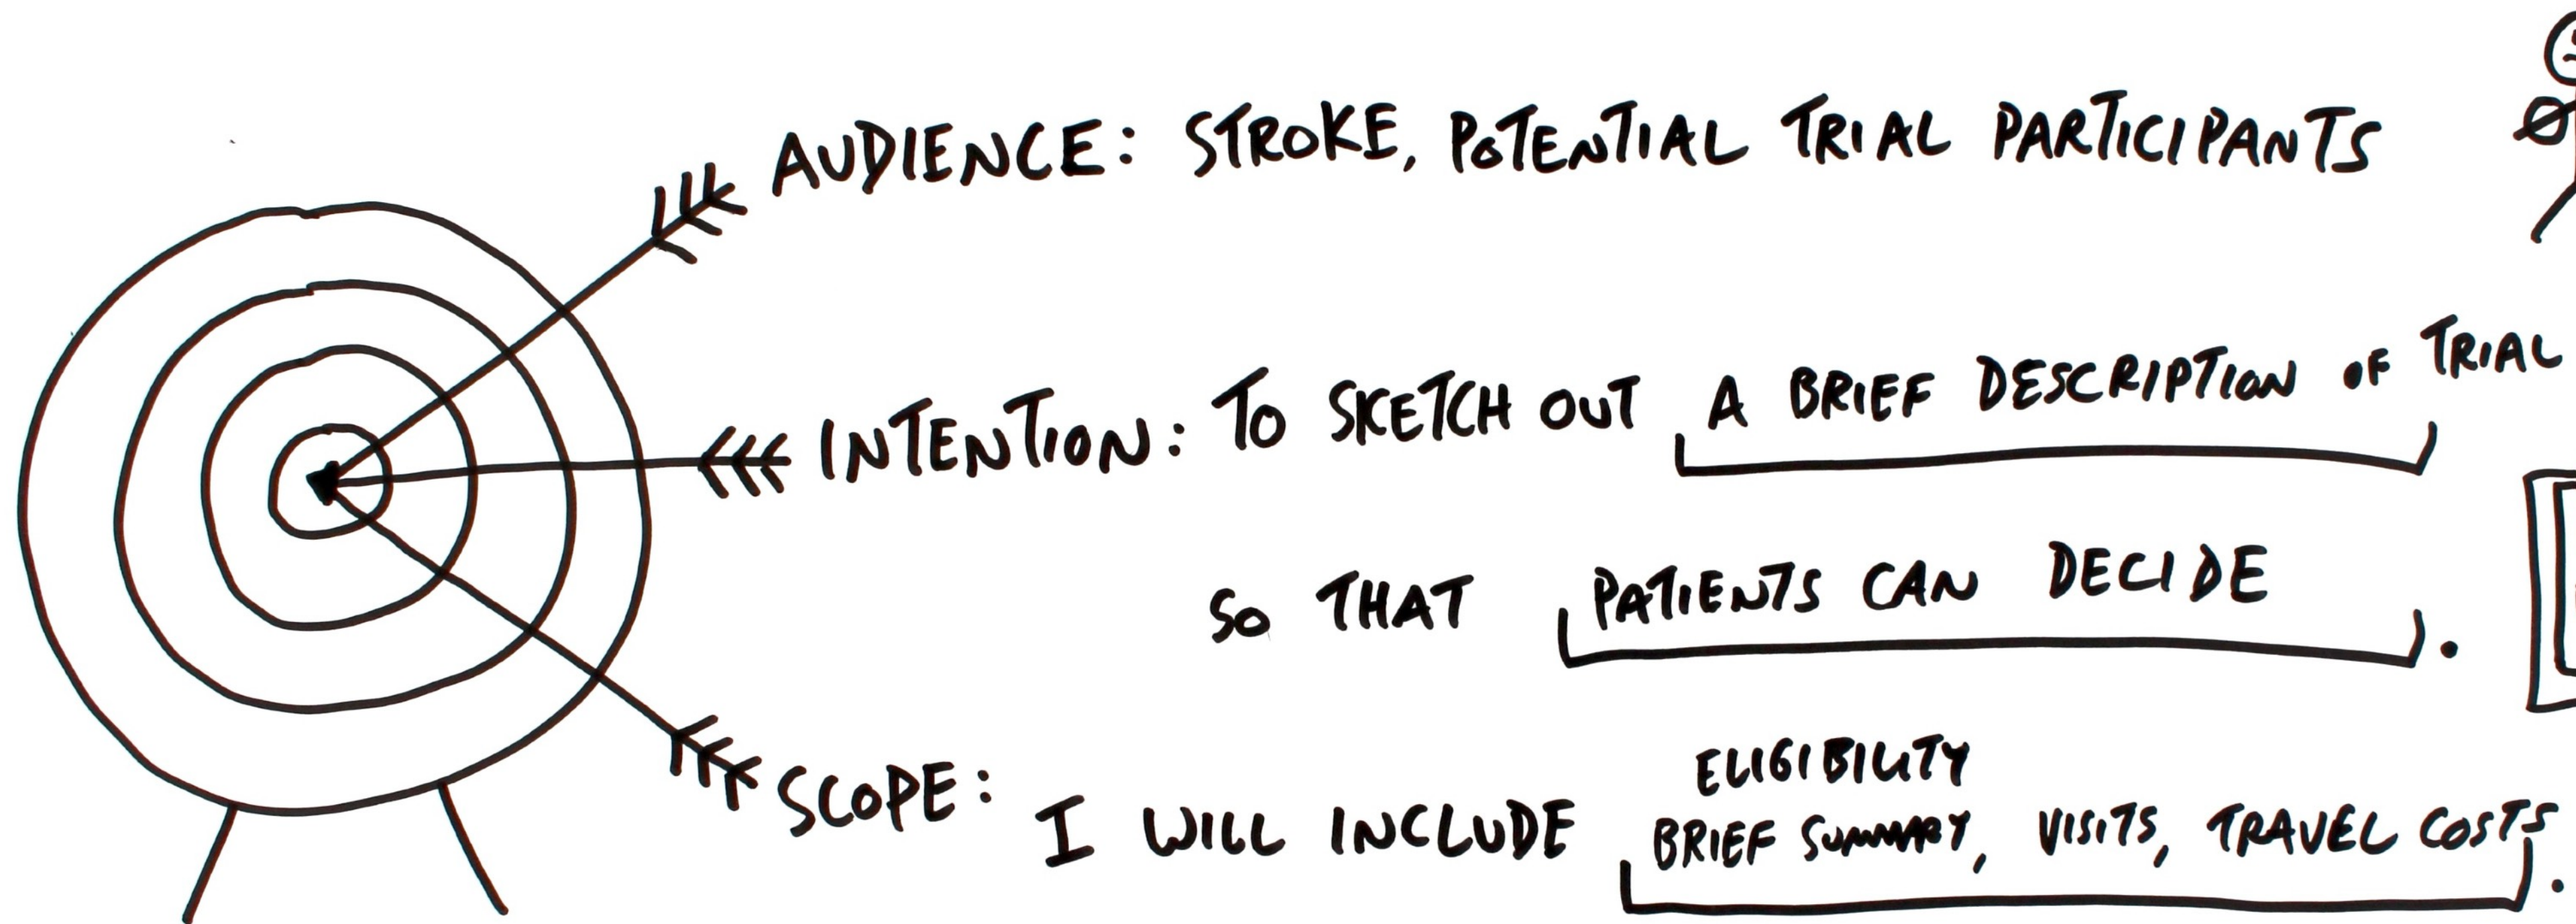 AUDIENCE: STROKE, POTENTIAL TRIAL PARTICIPANTS
INTENTION: TO SKETCH OUT A BRIEF DESCRIPTION OF TRIAL
SO THAT PATIENTS CAN DECIDE.
ELIGIBILITY
SCOPE: I WILL INCLUDE BRIEF SUMMARY, VISITS, TRAVEL COSTS.